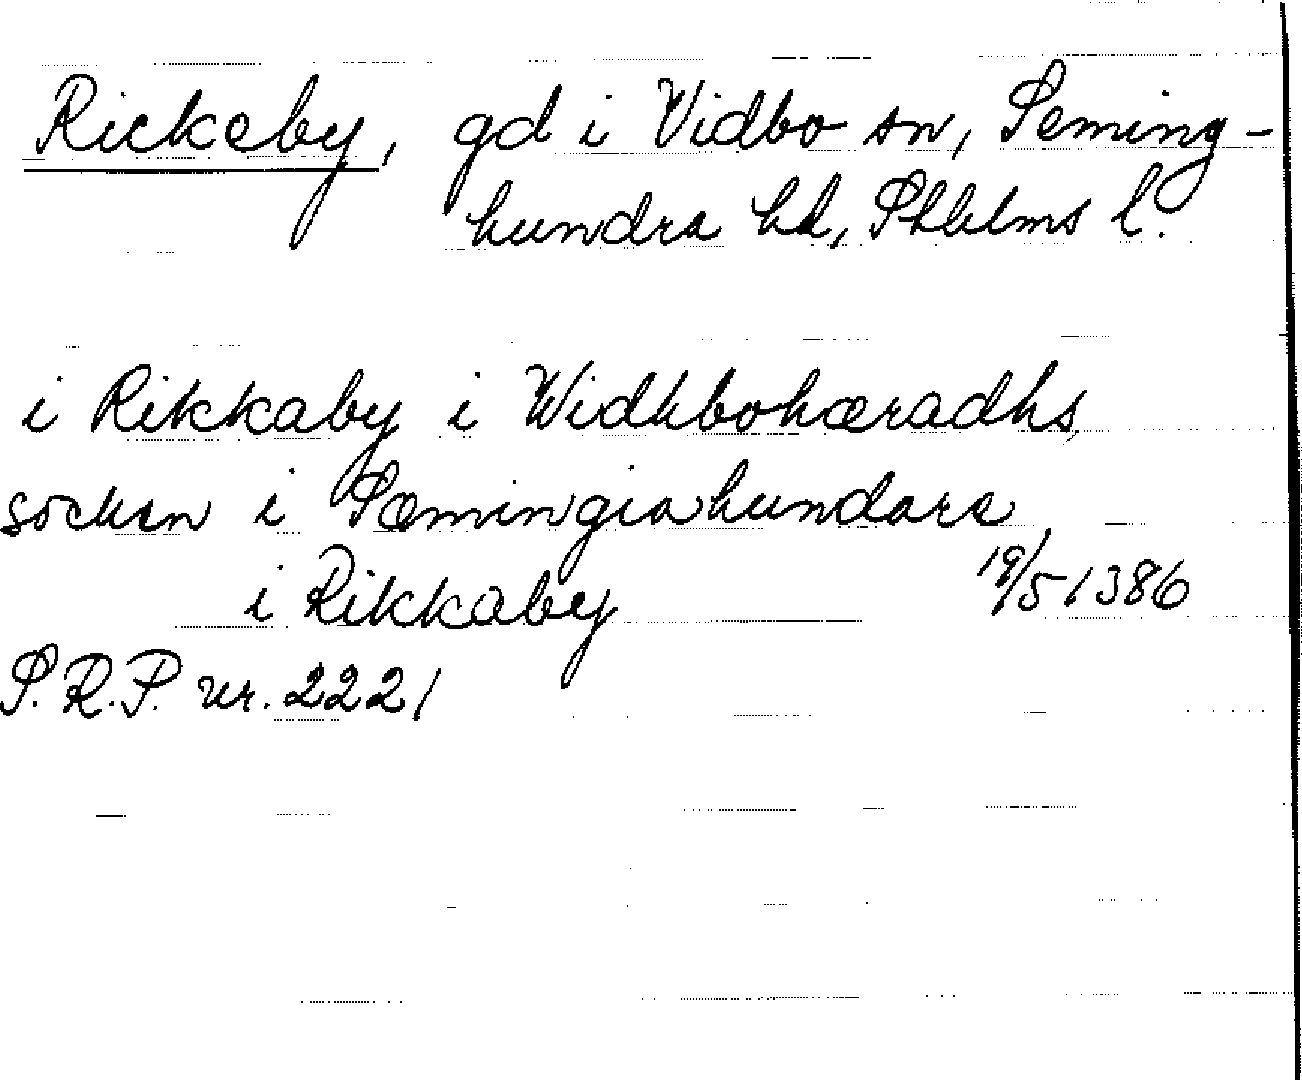 Rickeby, gd i Vidbo sn, Seming-
hundra hd, Sthlms l.
i Rikkaby i Widhbohæradhs
socken i Sæmingiahundare
i Rikkaby 19/5 1386
S.R.P. nr. 2221